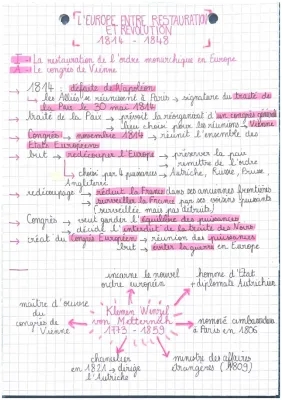 L'EUROPE ENTRE RESTAURATION
ET REVOLUTION
1814 - 1848
I - La restauration de l'ordre monarchique en Europe
A - Le congrès de Vienne
→ 1814 : défaite de Napoléon
→ les Alliés se réunissent à Paris → signature du traité de
la Paix le 30 mai 1814
→ traité de la Paix → prévoit la réorganisat° d'un congrès général
→ lieu choisi pour les réunions :
→ Congrès → novembre 1814 → réunit l'ensemble des
Etats Européens
→ but → redécouper l'Europe → préserver la paix
remettre de l'ordre
→ choisi par 4 puissances → Autriche, Russie, Prusse
Angleterre
→ redécoupage → réduit la France dans ses anciennes frontières
→ surveiller la France par ses voisins puissants
(surveillée mais pas détruite)
→ Congrès → veut garder l'équilibre des puissances
→ décide l'interdit de la traite des Noirs
→ réunion des puissances
but → éviter la guerre en Europe
incarne le nouvel
ordre européen
homme d'Etat
+ diplomate Autrichien
maître d'œuvre
du
congrès de
Vienne
Klemen Wenzel
von Metternich
1773 - 1859
nommé ambassadeur
à Paris en 1806
chancelier
en 1821 → dirige
l'Autriche
ministre des affaires
étrangères (1809)